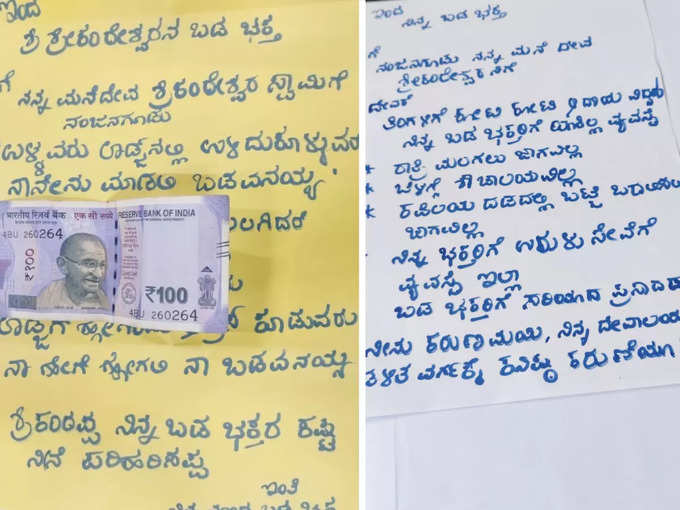 ಇಂದ
ಶ್ರೀ ಶ್ರೀಕಂಠೇಶ್ವರನ ಬಡ ಭಕ್ತ
ಗೆ
ನನ್ನ ಮನೆದೇವ ಶ್ರೀಕಂಠೇಶ್ವರ ಸ್ವಾಮಿಗೆ
ನಂಜನಗೂಡು
ಉಳ್ಳವರು ಲಾಡ್ಜ್‌ನಲ್ಲಿ ಉಳಿದುಕೊಳ್ಳುವರು
ನಾನೇನು ಮಾಡಲಿ ಬಡವನಯ್ಯ
भारतीय रिज़र्व बैंक एक सौ रुपये
RESERVE BANK OF INDIA
4BU 260264
₹१००
₹100
4BU 260264
ಕೊಡುವರು
ನಾ ಹೇಗೆ ಹೋಗಲಿ ನಾ ಬಡವನಯ್ಯ
ಶ್ರೀಕಂಠಪ್ಪ ನಿನ್ನ ಬಡ ಭಕ್ತರ ಕಷ್ಟ
ನೀನೆ ಪರಿಹರಿಸಪ್ಪ
ಇಂತಿ
ಇಂದ
ನಿನ್ನ ಬಡ ಭಕ್ತ
ಗೆ
ನಂಜನಗೂಡು ನನ್ನ ಮನೆ ದೇವ
ಶ್ರೀಕಂಠೇಶ್ವರನಿಗೆ
ದೇವರೆ
ತಿಂಗಳಿಗೆ ಕೋಟಿ ಕೋಟಿ ಆದಾಯ ವಿದ್ದರು
ನಿನ್ನ ಬಡ ಭಕ್ತರಿಗೆ ಯಾಕಿಲ್ಲ ವ್ಯವಸ್ಥೆ
* ರಾತ್ರಿ ಮಲಗಲು ಜಾಗವಿಲ್ಲ
* ಬೆಳಗ್ಗೆ ಶೌಚಾಲಯವಿಲ್ಲ
* ಕಪಿಲೆಯ ದಡದಲ್ಲಿ ಬಟ್ಟೆ
ಜಾಗವಿಲ್ಲ
ನಿನ್ನ ಭಕ್ತರಿಗೆ ಉರುಳು ಸೇವೆಗೆ
ವ್ಯವಸ್ಥೆ ಇಲ್ಲಾ
ಬಡ ಭಕ್ತರಿಗೆ ಸರಿಯಾದ
ನೀನು ಕರುಣಾಮಯಿ, ನಿನ್ನ ದೇವಾಲಯ
ವರ್ಗಕ್ಕೆ ಸ್ವಲ್ಪ ಕರುಣೆಯಾ